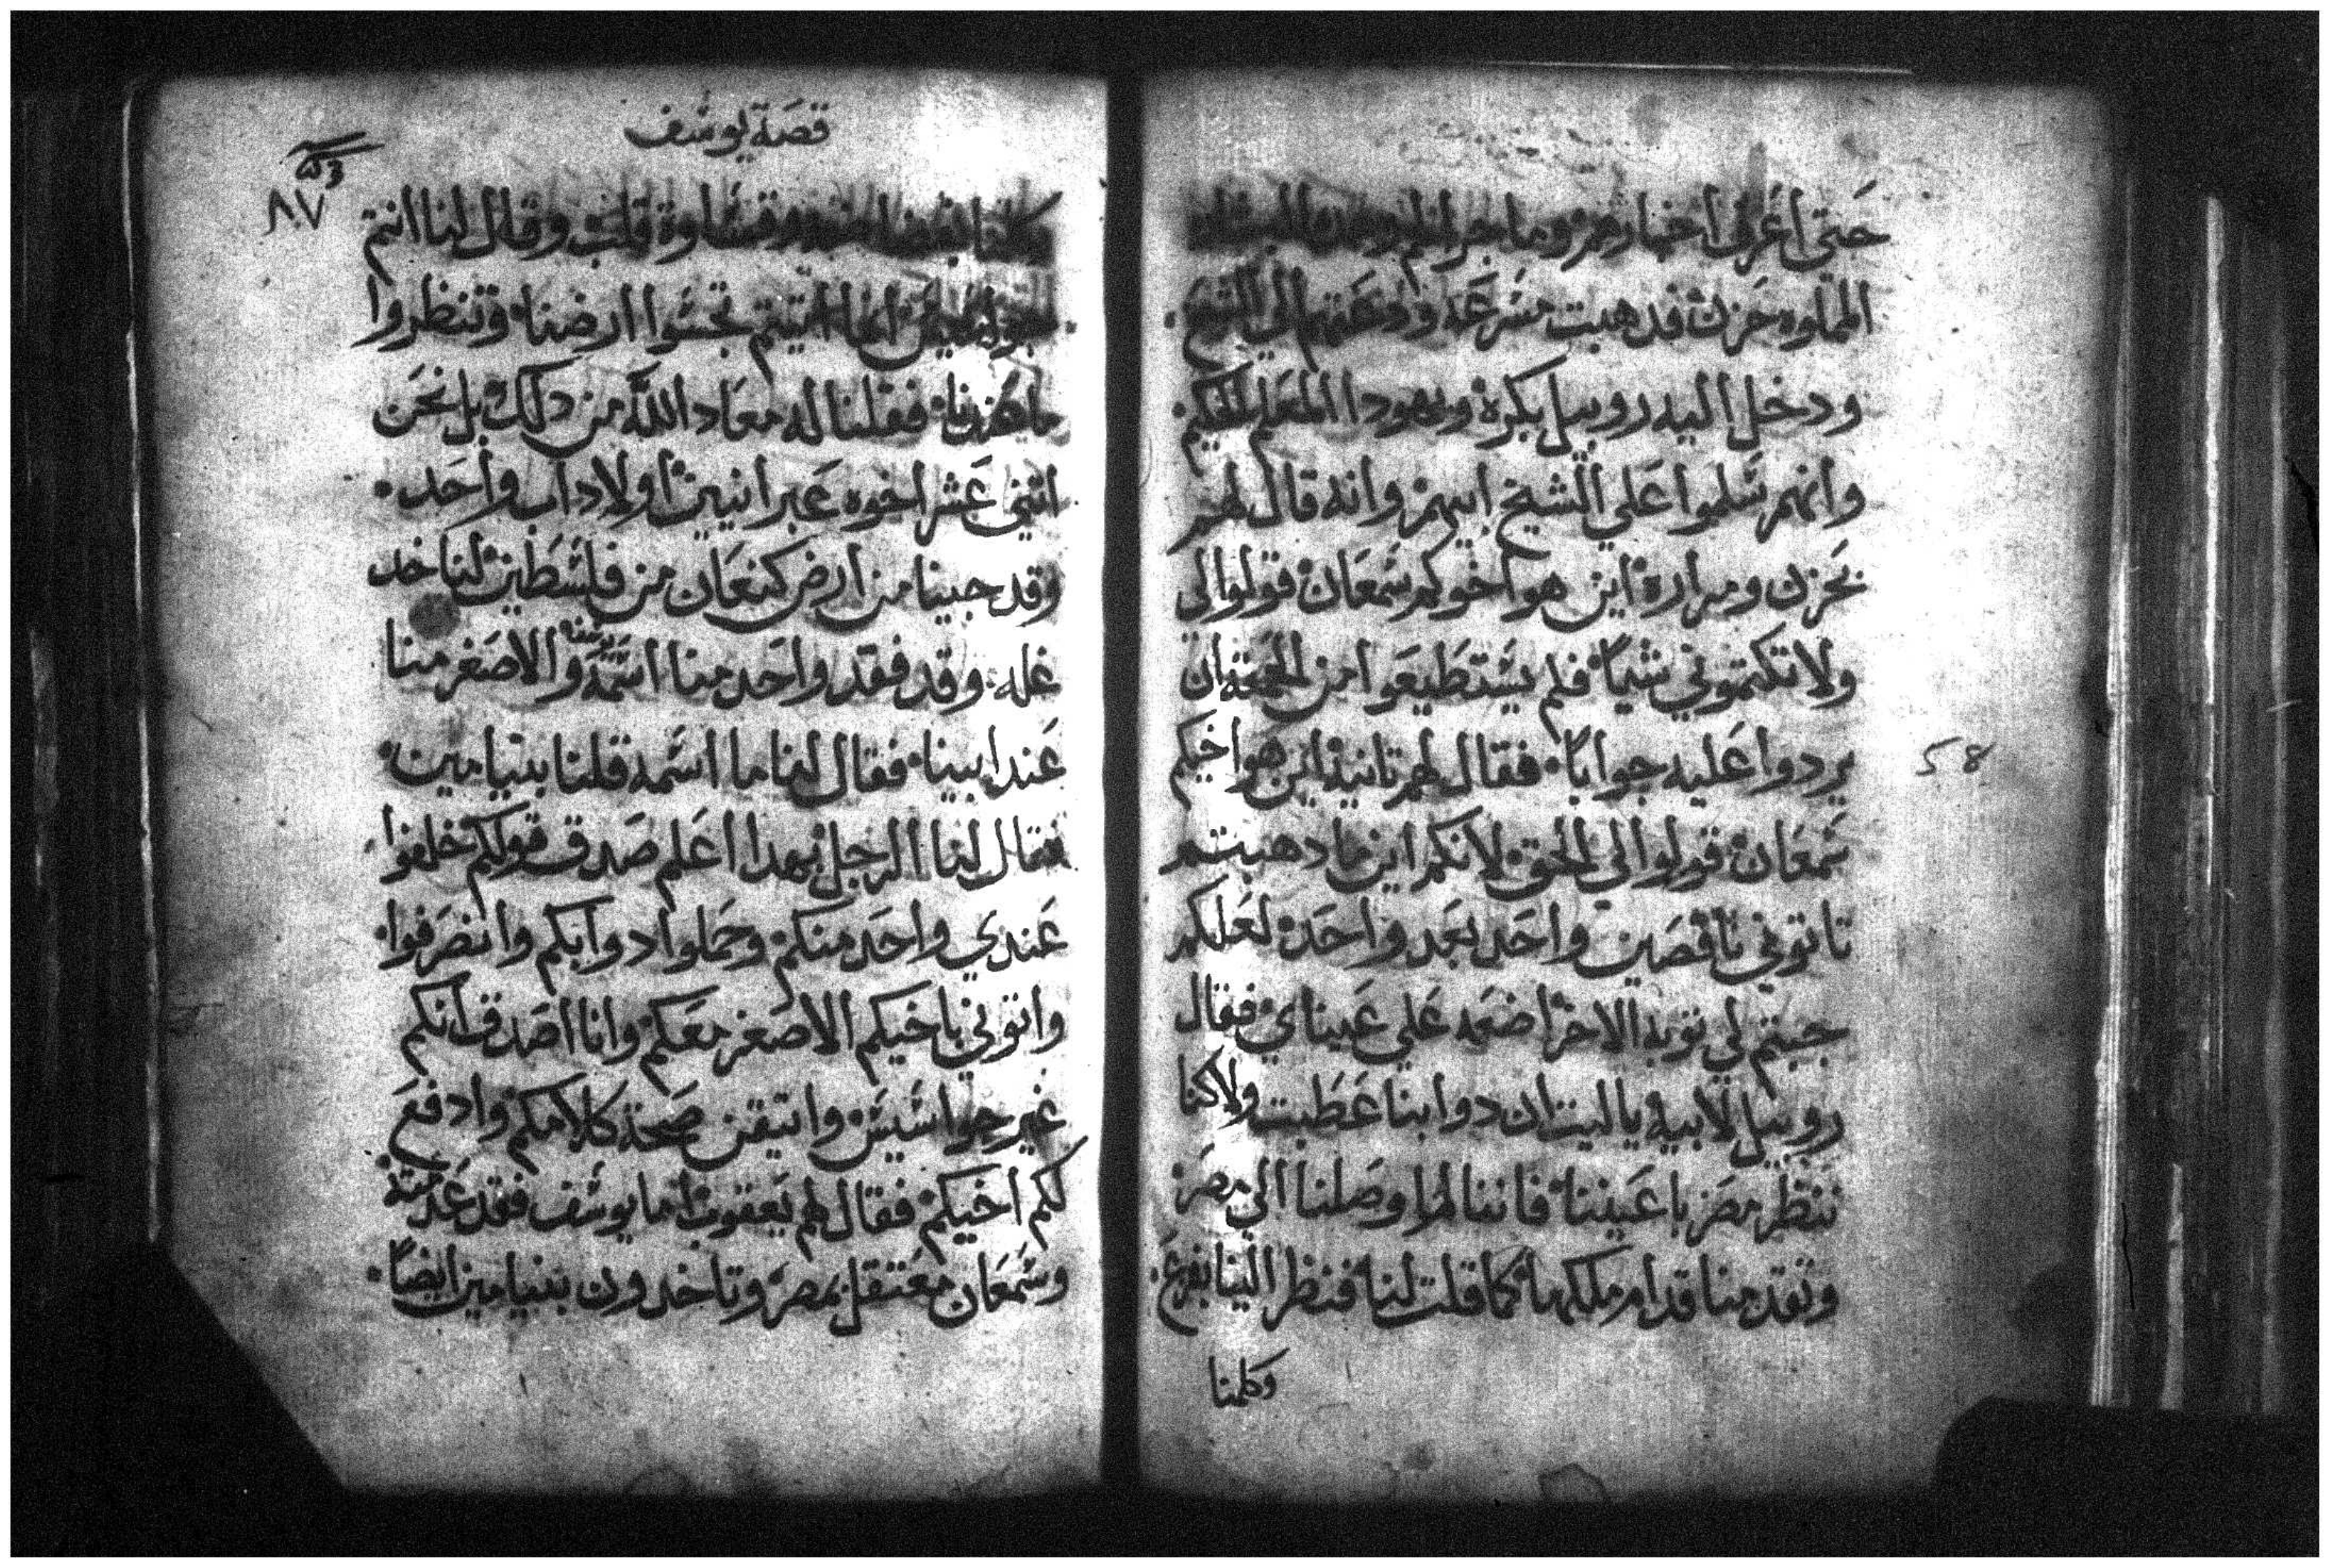 حتى اعرف اخبارهم وما جرا لهم
المملوه حزن فدهبت مسرعه ودفعتها الى الشيخ
ودخل اليه روبيل بكرة ويهودا المعلم الحكيم
وانهم سلموا على الشيخ ابيهم وانه قال لهم
بحزن ومرارة اين هو اخوكم شمعان قولوا لي
ولا تكتموني شياً فلم يستطيعوا من الجمعة ان
يردوا عليه جواباً فقال لهم تانية اين هو اخيكم
شمعان قولوا لي الحق لانكم اين ما دهبتم
تاتوني ناقصين واحد بعد واحد لعلكم
جيتم لي توبه الاخر اضعه على عيناي فقال
روبيل لابيه ياليت ان دوابنا عطبت ولا كنا
ننظر مصر باعيننا فاننا لما وصلنا الي مصر
وتقدمنا قدام ملكها كما قلت لنا فنظر الينا بفزع
وكلمنا
58
قصة يوسف
٨٧
وكلمنا وقساوة قلب وقال لنا انتم
اتيتم تجسوا ارضنا وتنظروا
فقلنا له معاد الله من دلك بل نحن
اتني عشر اخوه عبرانيين اولاد اب واحد
وقد جيينا من ارض كنعان من فلسطين لناخد
غله وقد فقد واحد منا اسمه والاصغر منا
عند ابينا فقال لنا ما اسمه قلنا بنيامين
فقال لنا الرجل بهدا اعلم صدق قولكم خلفوا
عندي واحد منكم وحملوا دوابكم وانصرفوا
واتوني باخيكم الاصغر معكم وانا اصدق انكم
غير جواسيس واتيقن صحة كلامكم وادفع
لكم اخيكم فقال لهم يعقوب اما يوسف فقد عدمته
وشمعان معتقل بمصر وتاخدون بنيامين ايضاً